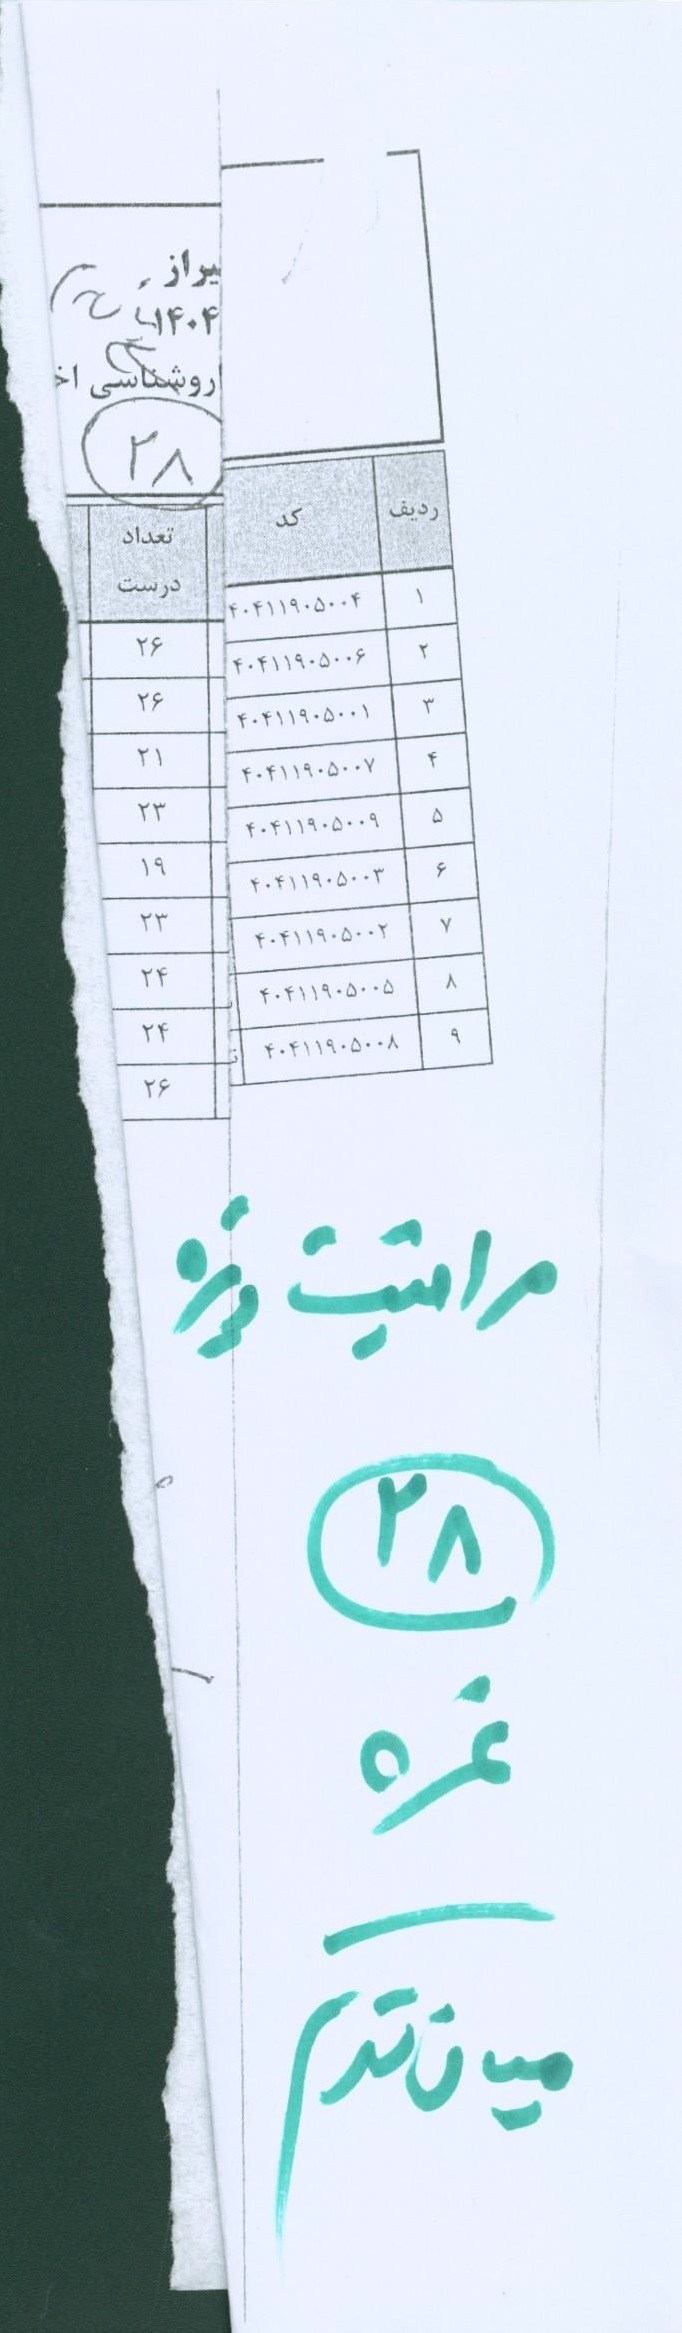 یراز
۱۴۰۴
اروشناسی اخ
۲۸
ردیف کد تعداد درست
۱ ۴۰۴۱۱۹۰۵۰۰۴ ۲۶
۲ ۴۰۴۱۱۹۰۵۰۰۶ ۲۶
۳ ۴۰۴۱۱۹۰۵۰۰۱ ۲۱
۴ ۴۰۴۱۱۹۰۵۰۰۷ ۲۳
۵ ۴۰۴۱۱۹۰۵۰۰۹ ۱۹
۶ ۴۰۴۱۱۹۰۵۰۰۳ ۲۳
۷ ۴۰۴۱۱۹۰۵۰۰۲ ۲۴
۸ ۴۰۴۱۱۹۰۵۰۰۵ ۲۴
۹ ۴۰۴۱۱۹۰۵۰۰۸ ۲۶
مراقبت ویژه
۲۸
نمره
میان ترم